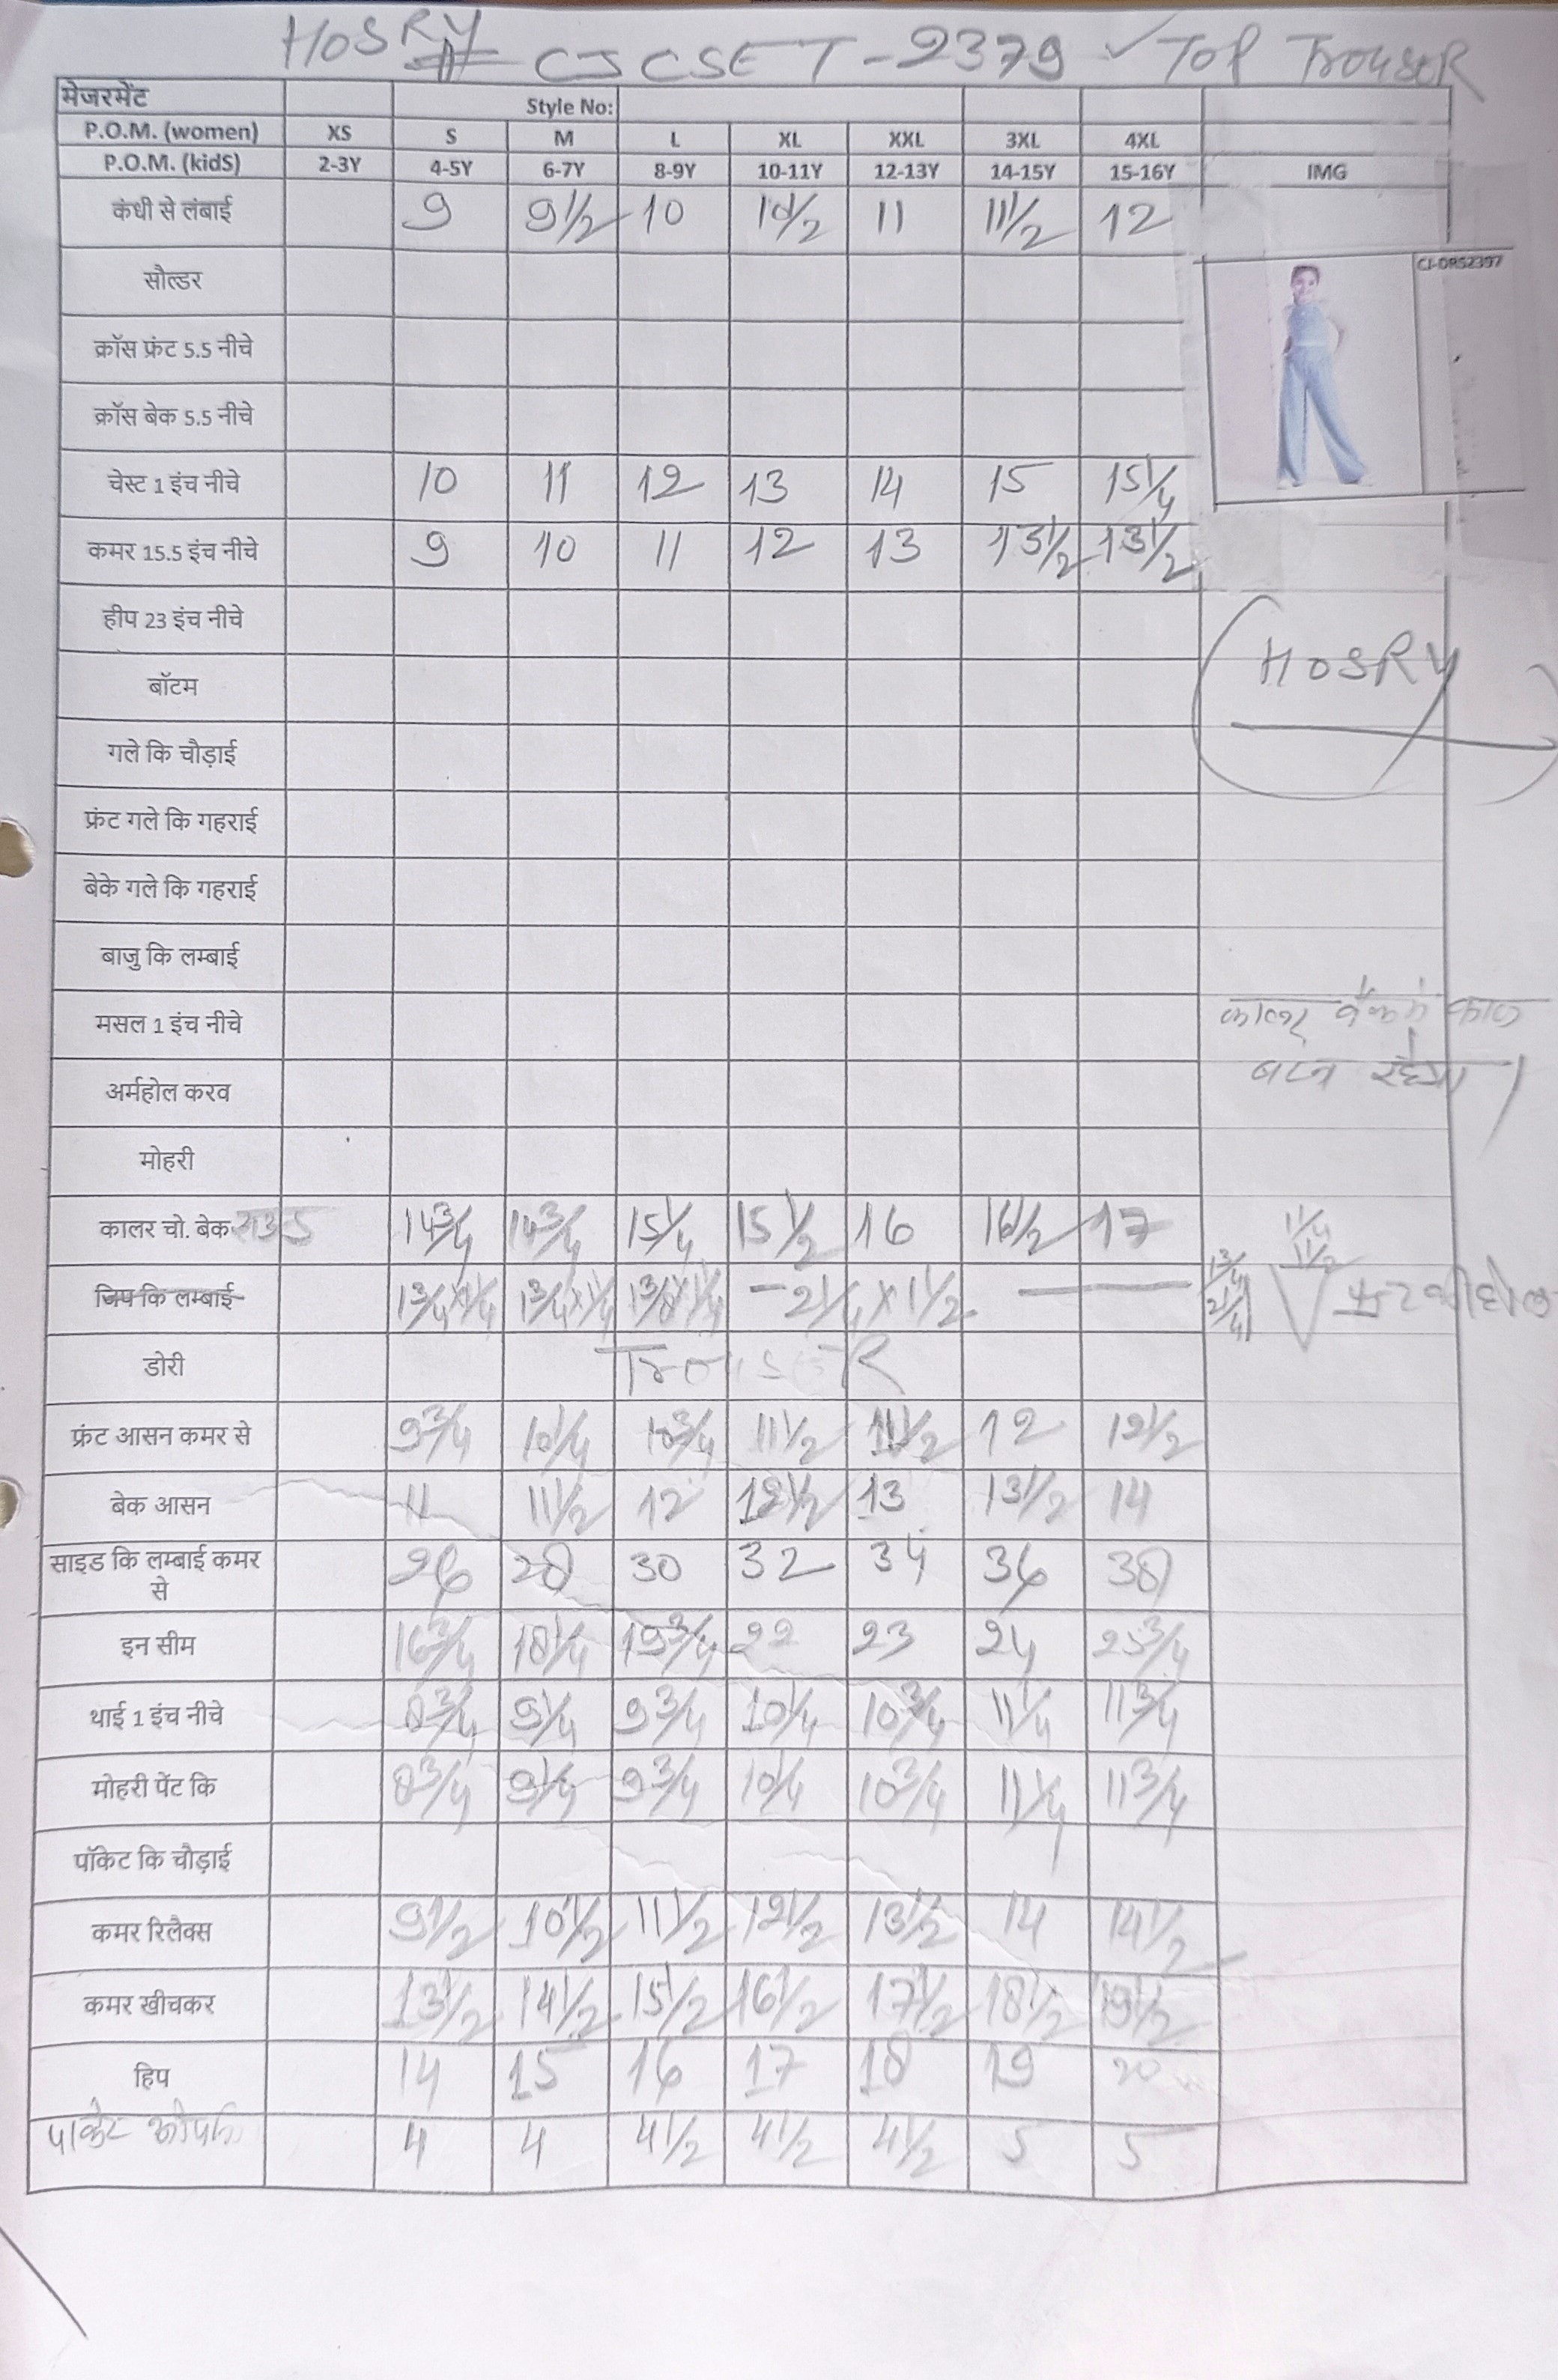 HOSRY CJCSET-2379 ✓ TOP TrousER
मेजरमेंट Style No:
P.O.M. (women) XS S M L XL XXL 3XL 4XL
P.O.M. (kidS) 2-3Y 4-5Y 6-7Y 8-9Y 10-11Y 12-13Y 14-15Y 15-16Y IMG
कंधी से लंबाई 9 9 1/2 10 10 1/2 11 11 1/2 12
CJ-DRS2397
सौल्डर
क्रॉस फ्रंट 5.5 नीचे
क्रॉस बेक 5.5 नीचे
चेस्ट 1 इंच नीचे 10 11 12 13 14 15 15 1/4
कमर 15.5 इंच नीचे 9 10 11 12 13 13 1/2 13 1/2
हीप 23 इंच नीचे
HOSRY
बॉटम
गले कि चौड़ाई
फ्रंट गले कि गहराई
बेके गले कि गहराई
बाजु कि लम्बाई
मसल 1 इंच नीचे
अर्महोल करव
मोहरी
कालर चो. बेक राउंड 14 3/4 14 3/4 15 1/4 15 1/2 16 16 1/2 17
1 1/4
1 1/2
जिप कि लम्बाई 1 3/4 x 1 1/4 1 3/4 x 1 1/4 1 3/8 x 1 1/4 — 2 1/4 x 1 1/2 —
1 3/4
2 1/4
डोरी TrousER
फ्रंट आसन कमर से 9 3/4 10 1/4 10 3/4 11 1/2 11 1/2 12 12 1/2
बेक आसन 11 11 1/2 12 12 1/2 13 13 1/2 14
साइड कि लम्बाई कमर से 26 28 30 32 34 36 38
इन सीम 16 3/4 18 1/4 19 3/4 22 23 24 25 3/4
थाई 1 इंच नीचे 8 3/4 9 1/4 9 3/4 10 1/4 10 3/4 11 1/4 11 3/4
मोहरी पेंट कि 8 3/4 9 1/4 9 3/4 10 1/4 10 3/4 11 1/4 11 3/4
पॉकेट कि चौड़ाई
कमर रिलैक्स 9 1/2 10 1/2 11 1/2 12 1/2 13 1/2 14 14 1/2
कमर खीचकर 13 1/2 14 1/2 15 1/2 16 1/2 17 1/2 18 1/2 19 1/2
हिप 14 15 16 17 18 19 20
पाकेट 4 4 4 1/2 4 1/2 4 1/2 5 5